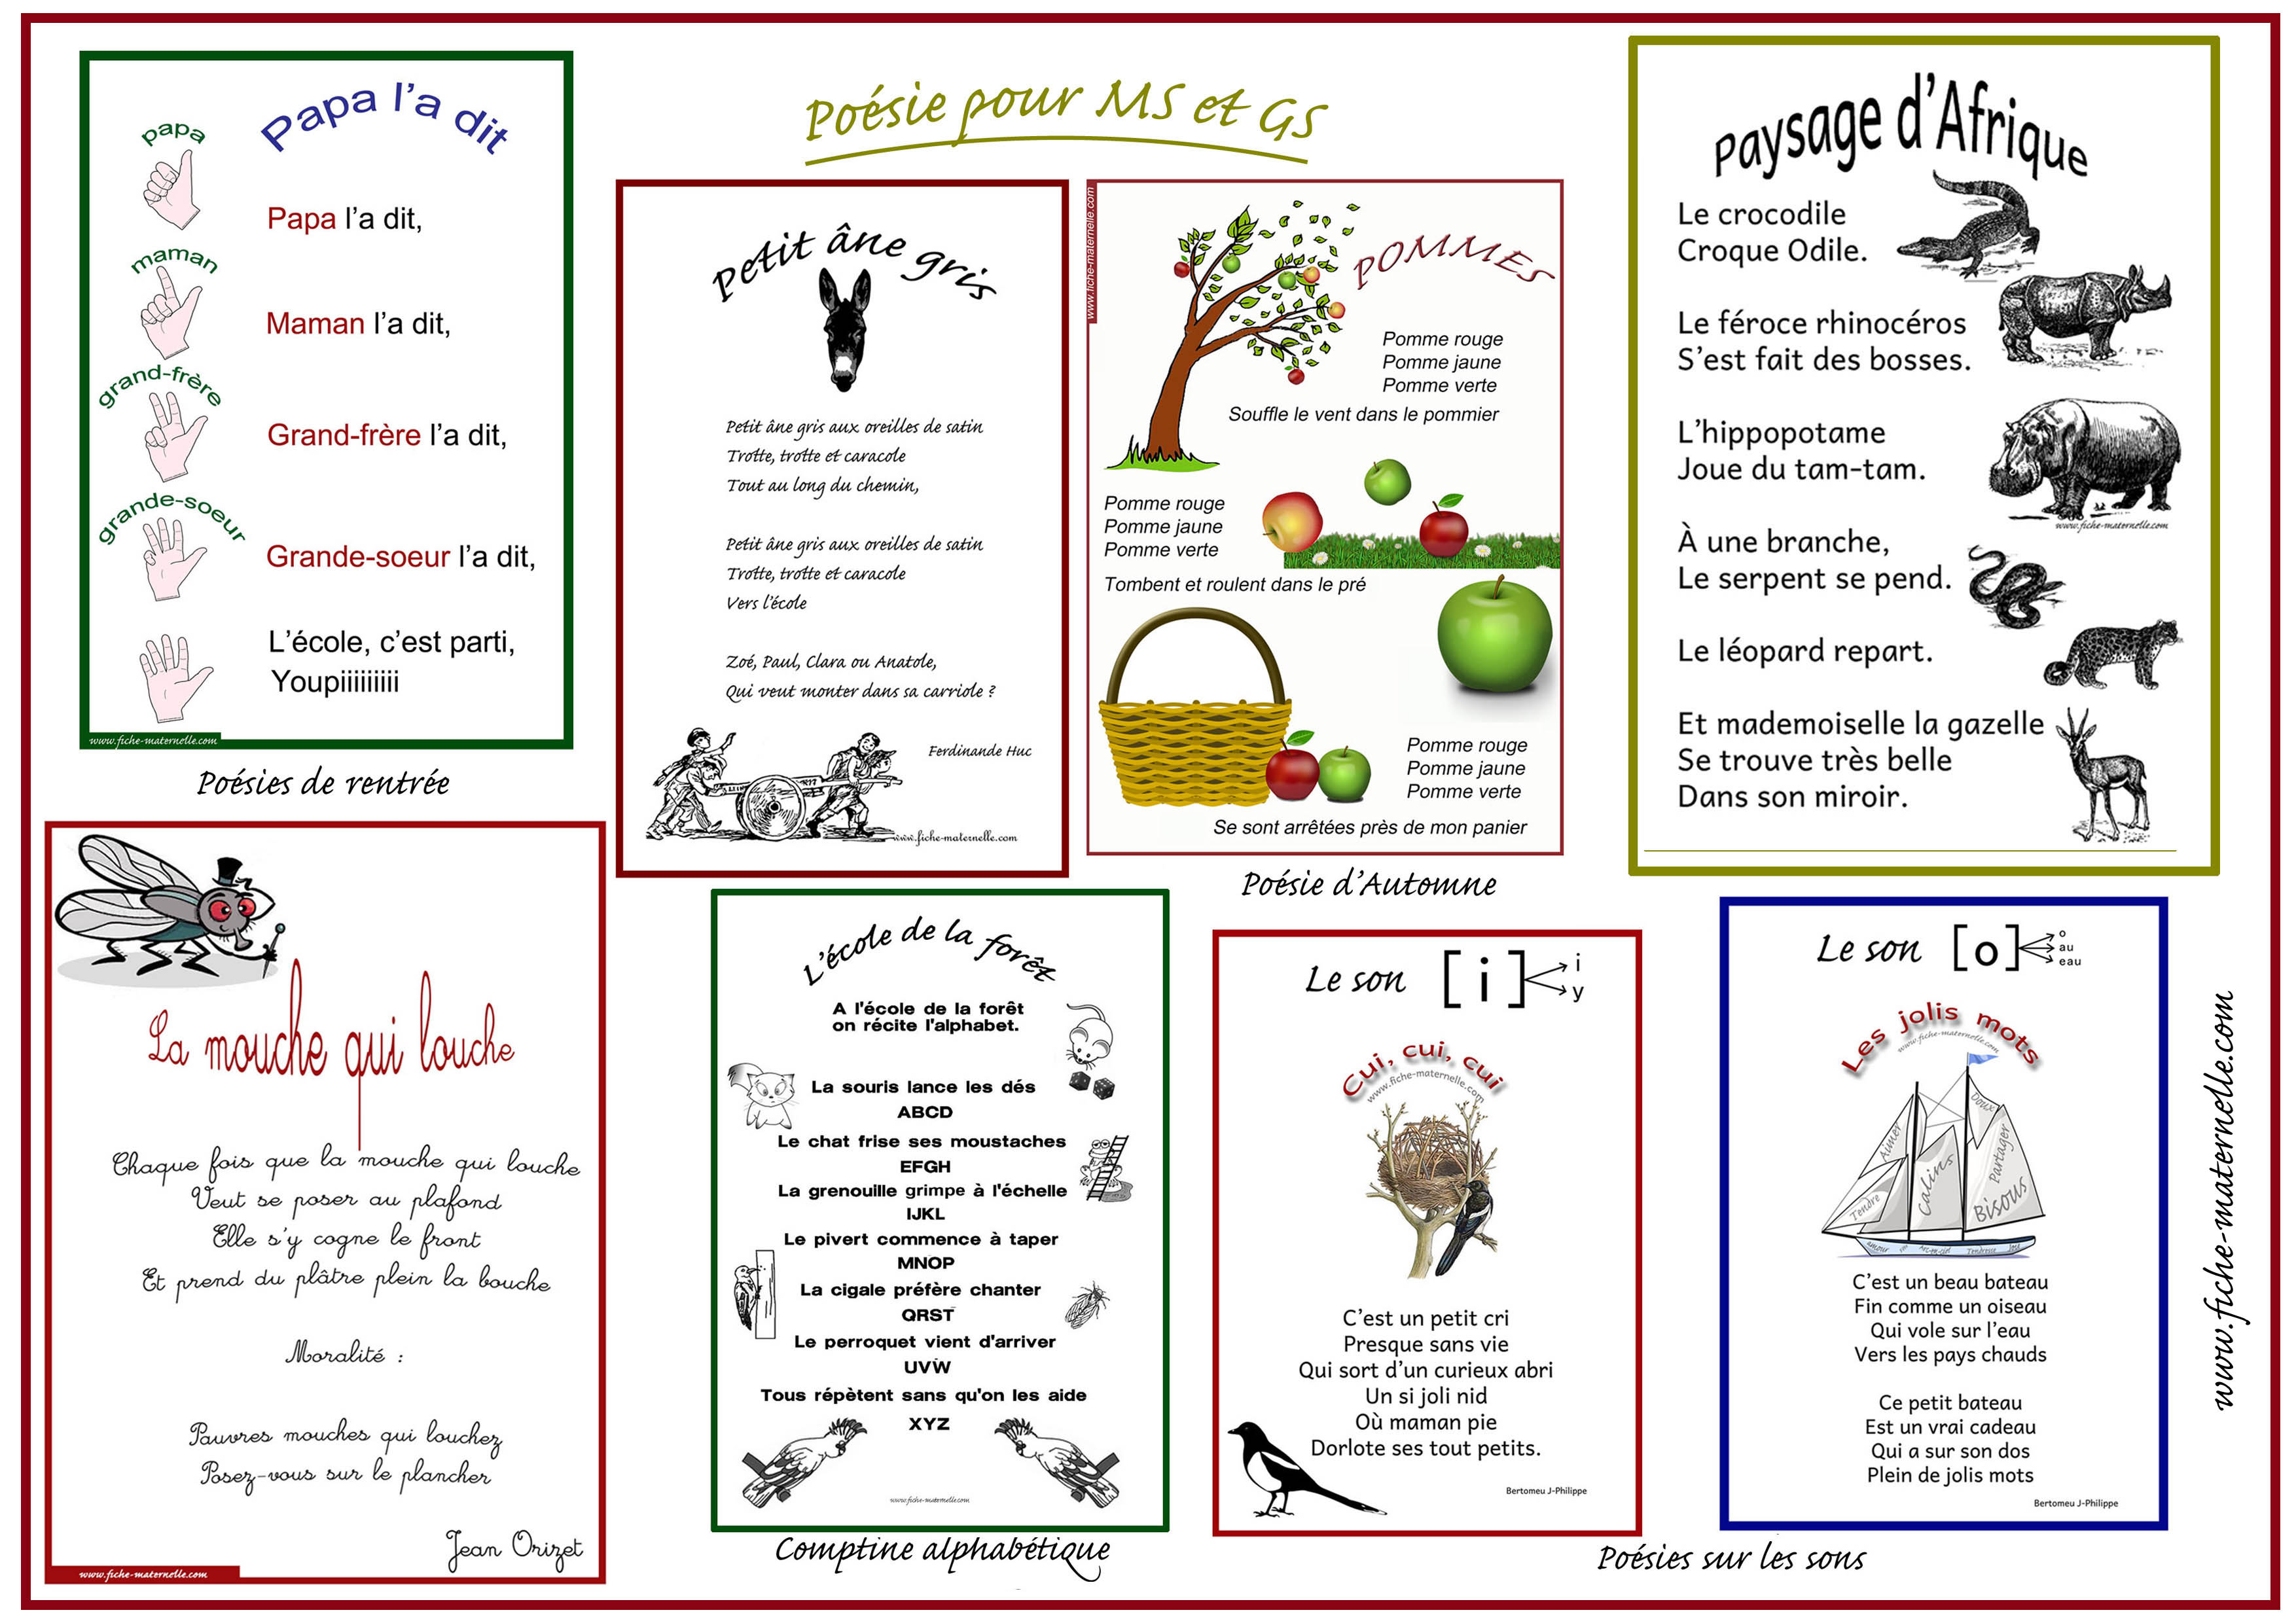 Poésie pour MS et GS
Papa l'a dit
papa
Papa l'a dit,
maman
Maman l'a dit,
grand-frère
Grand-frère l'a dit,
grande-soeur
Grande-soeur l'a dit,
L'école, c'est parti,
Youpiiiiiiiii
www.fiche-maternelle.com
Poésies de rentrée
Petit âne gris
Petit âne gris aux oreilles de satin
Trotte, trotte et caracole
Tout au long du chemin,
Petit âne gris aux oreilles de satin
Trotte, trotte et caracole
Vers l'école
Zoé, Paul, Clara ou Anatole,
Qui veut monter dans sa carriole ?
Ferdinande Huc
www.fiche-maternelle.com
www.fiche-maternelle.com
POMMES
Pomme rouge
Pomme jaune
Pomme verte
Souffle le vent dans le pommier
Pomme rouge
Pomme jaune
Pomme verte
Tombent et roulent dans le pré
Pomme rouge
Pomme jaune
Pomme verte
Se sont arrêtées près de mon panier
Poésie d'Automne
Paysage d'Afrique
Le crocodile
Croque Odile.
Le féroce rhinocéros
S'est fait des bosses.
L'hippopotame
Joue du tam-tam.
www.fiche-maternelle.com
À une branche,
Le serpent se pend.
Le léopard repart.
Et mademoiselle la gazelle
Se trouve très belle
Dans son miroir.
La mouche qui louche
Chaque fois que la mouche qui louche
Veut se poser au plafond
Elle s'y cogne le front
Et prend du plâtre plein la bouche
Moralité :
Pauvres mouches qui louchez
Posez-vous sur le plancher
Jean Orizet
www.fiche-maternelle.com
L'école de la forêt
A l'école de la forêt
on récite l'alphabet.
La souris lance les dés
ABCD
Le chat frise ses moustaches
EFGH
La grenouille grimpe à l'échelle
IJKL
Le pivert commence à taper
MNOP
La cigale préfère chanter
QRST
Le perroquet vient d'arriver
UVW
Tous répètent sans qu'on les aide
XYZ
www.fiche-maternelle.com
Comptine alphabétique
Le son [i] i
y
Cui, cui, cui
www.fiche-maternelle.com
C'est un petit cri
Presque sans vie
Qui sort d'un curieux abri
Un si joli nid
Où maman pie
Dorlote ses tout petits.
Bertomeu J-Philippe
Le son [o] o
au
eau
Les jolis mots
www.fiche-maternelle.com
Doux
Aimer
Partager
Calins
Tendre
Bisous
amour
Arc-en-ciel
Tendresse
C'est un beau bateau
Fin comme un oiseau
Qui vole sur l'eau
Vers les pays chauds
Ce petit bateau
Est un vrai cadeau
Qui a sur son dos
Plein de jolis mots
Bertomeu J-Philippe
Poésies sur les sons
www.fiche-maternelle.com